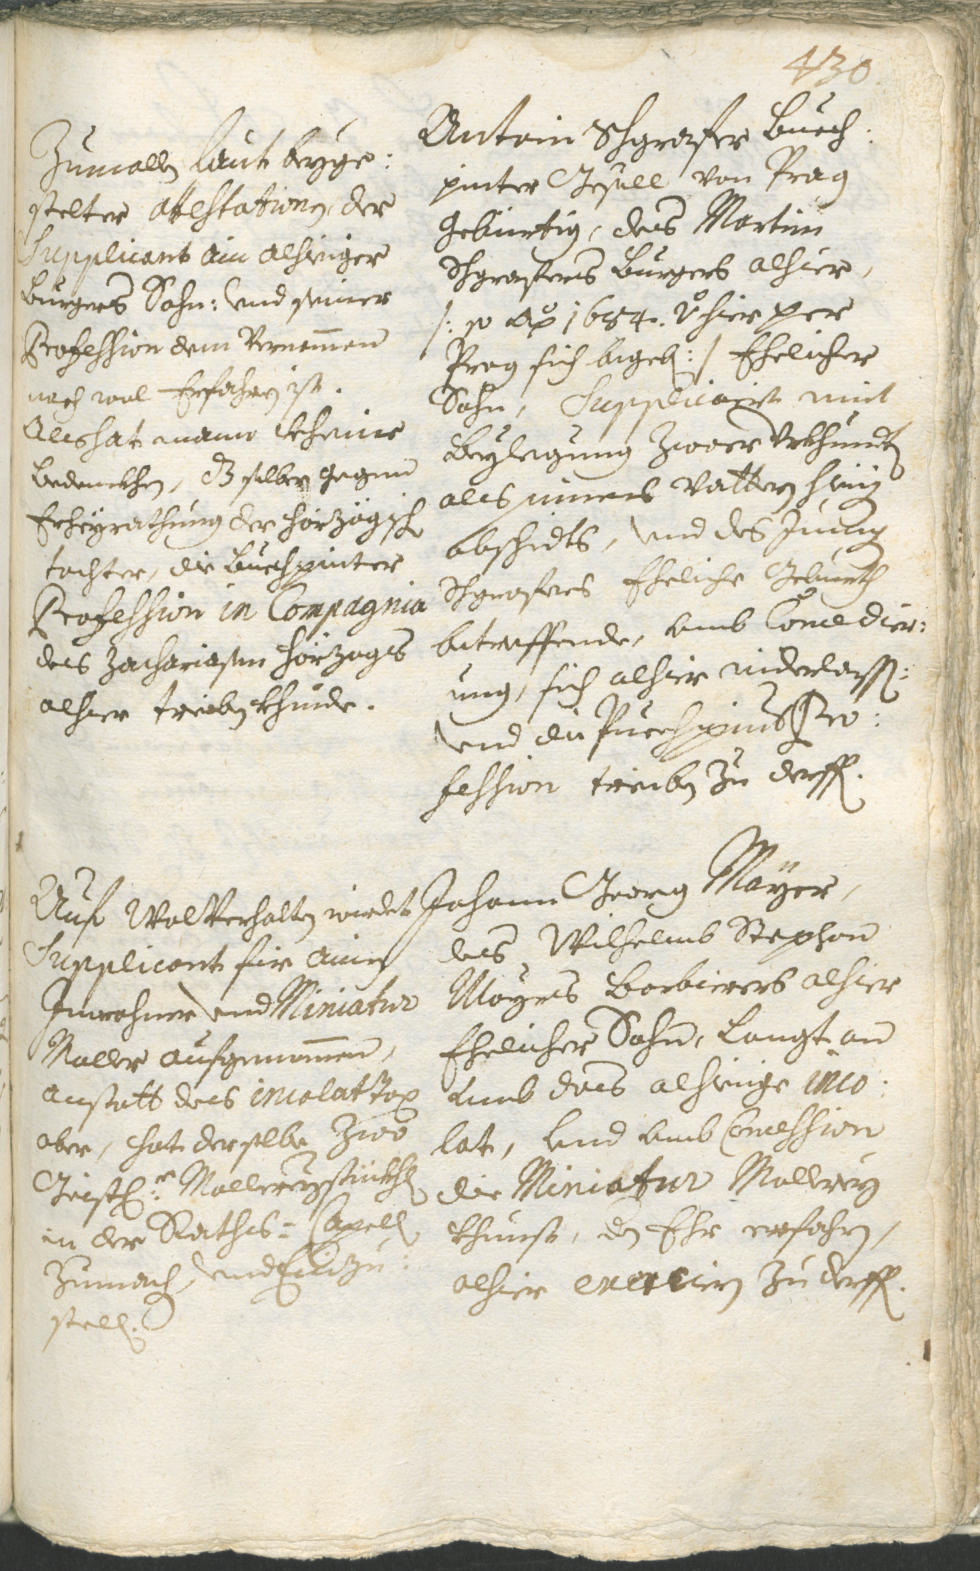 430
Zumallen laut beyge:
stelter attestationen, der
Supplicant ain alhieiger
Burgers Sohn: und seiner
Profession dem Vernemmen
nach wol Erfahren ist.
Als hat mann kheine
Bedenkhen, dz selber gegen
Erheyrathung der Hörzogisch
tochter, die Buechpinter
Profession in Compagnia
des Zachariasen Hörzogs
alhier treiben khinde.
Antoni Schgrafer Buech:
pinter Gesell von Prag
Gebürtig, des Martin
Schgrafers Burgers alhier,
/: so Aō 1684. von hier per
Prag sich begeb: / Ehelicher
Sohn, Supplicirt mit
Beylegung zwoer Urkhundten
als seines Vatters hinig
abschidts, und des Jung
Schgrafers Eheliche Geburth
betreffende, umb Concedier:
ung, sich alhier niderlass:
und die Puechpints Pro:
fession treiben zu derffen.
Auf Wolverhalten wirdet
Supplicant fir ainen
Inwohner und Miniatur
Maller aufgenommen,
anstatt des incolat tax
aber, hat derselbe zwo
Geistl: Mallereystückhl
in der Raths= Capell
zumachen, und Einzu:
stellen.
Johann Georg Mayer,
des Wilhelmb Stephan
Mayrs Barbierers alhier
Ehelicher Sohn, Langt an
umb das alhieige inco:
lat, und umb Concession
die Miniatur Mallerey
khunst, den Ehr erfahren,
alhier exerciern zu derffen.